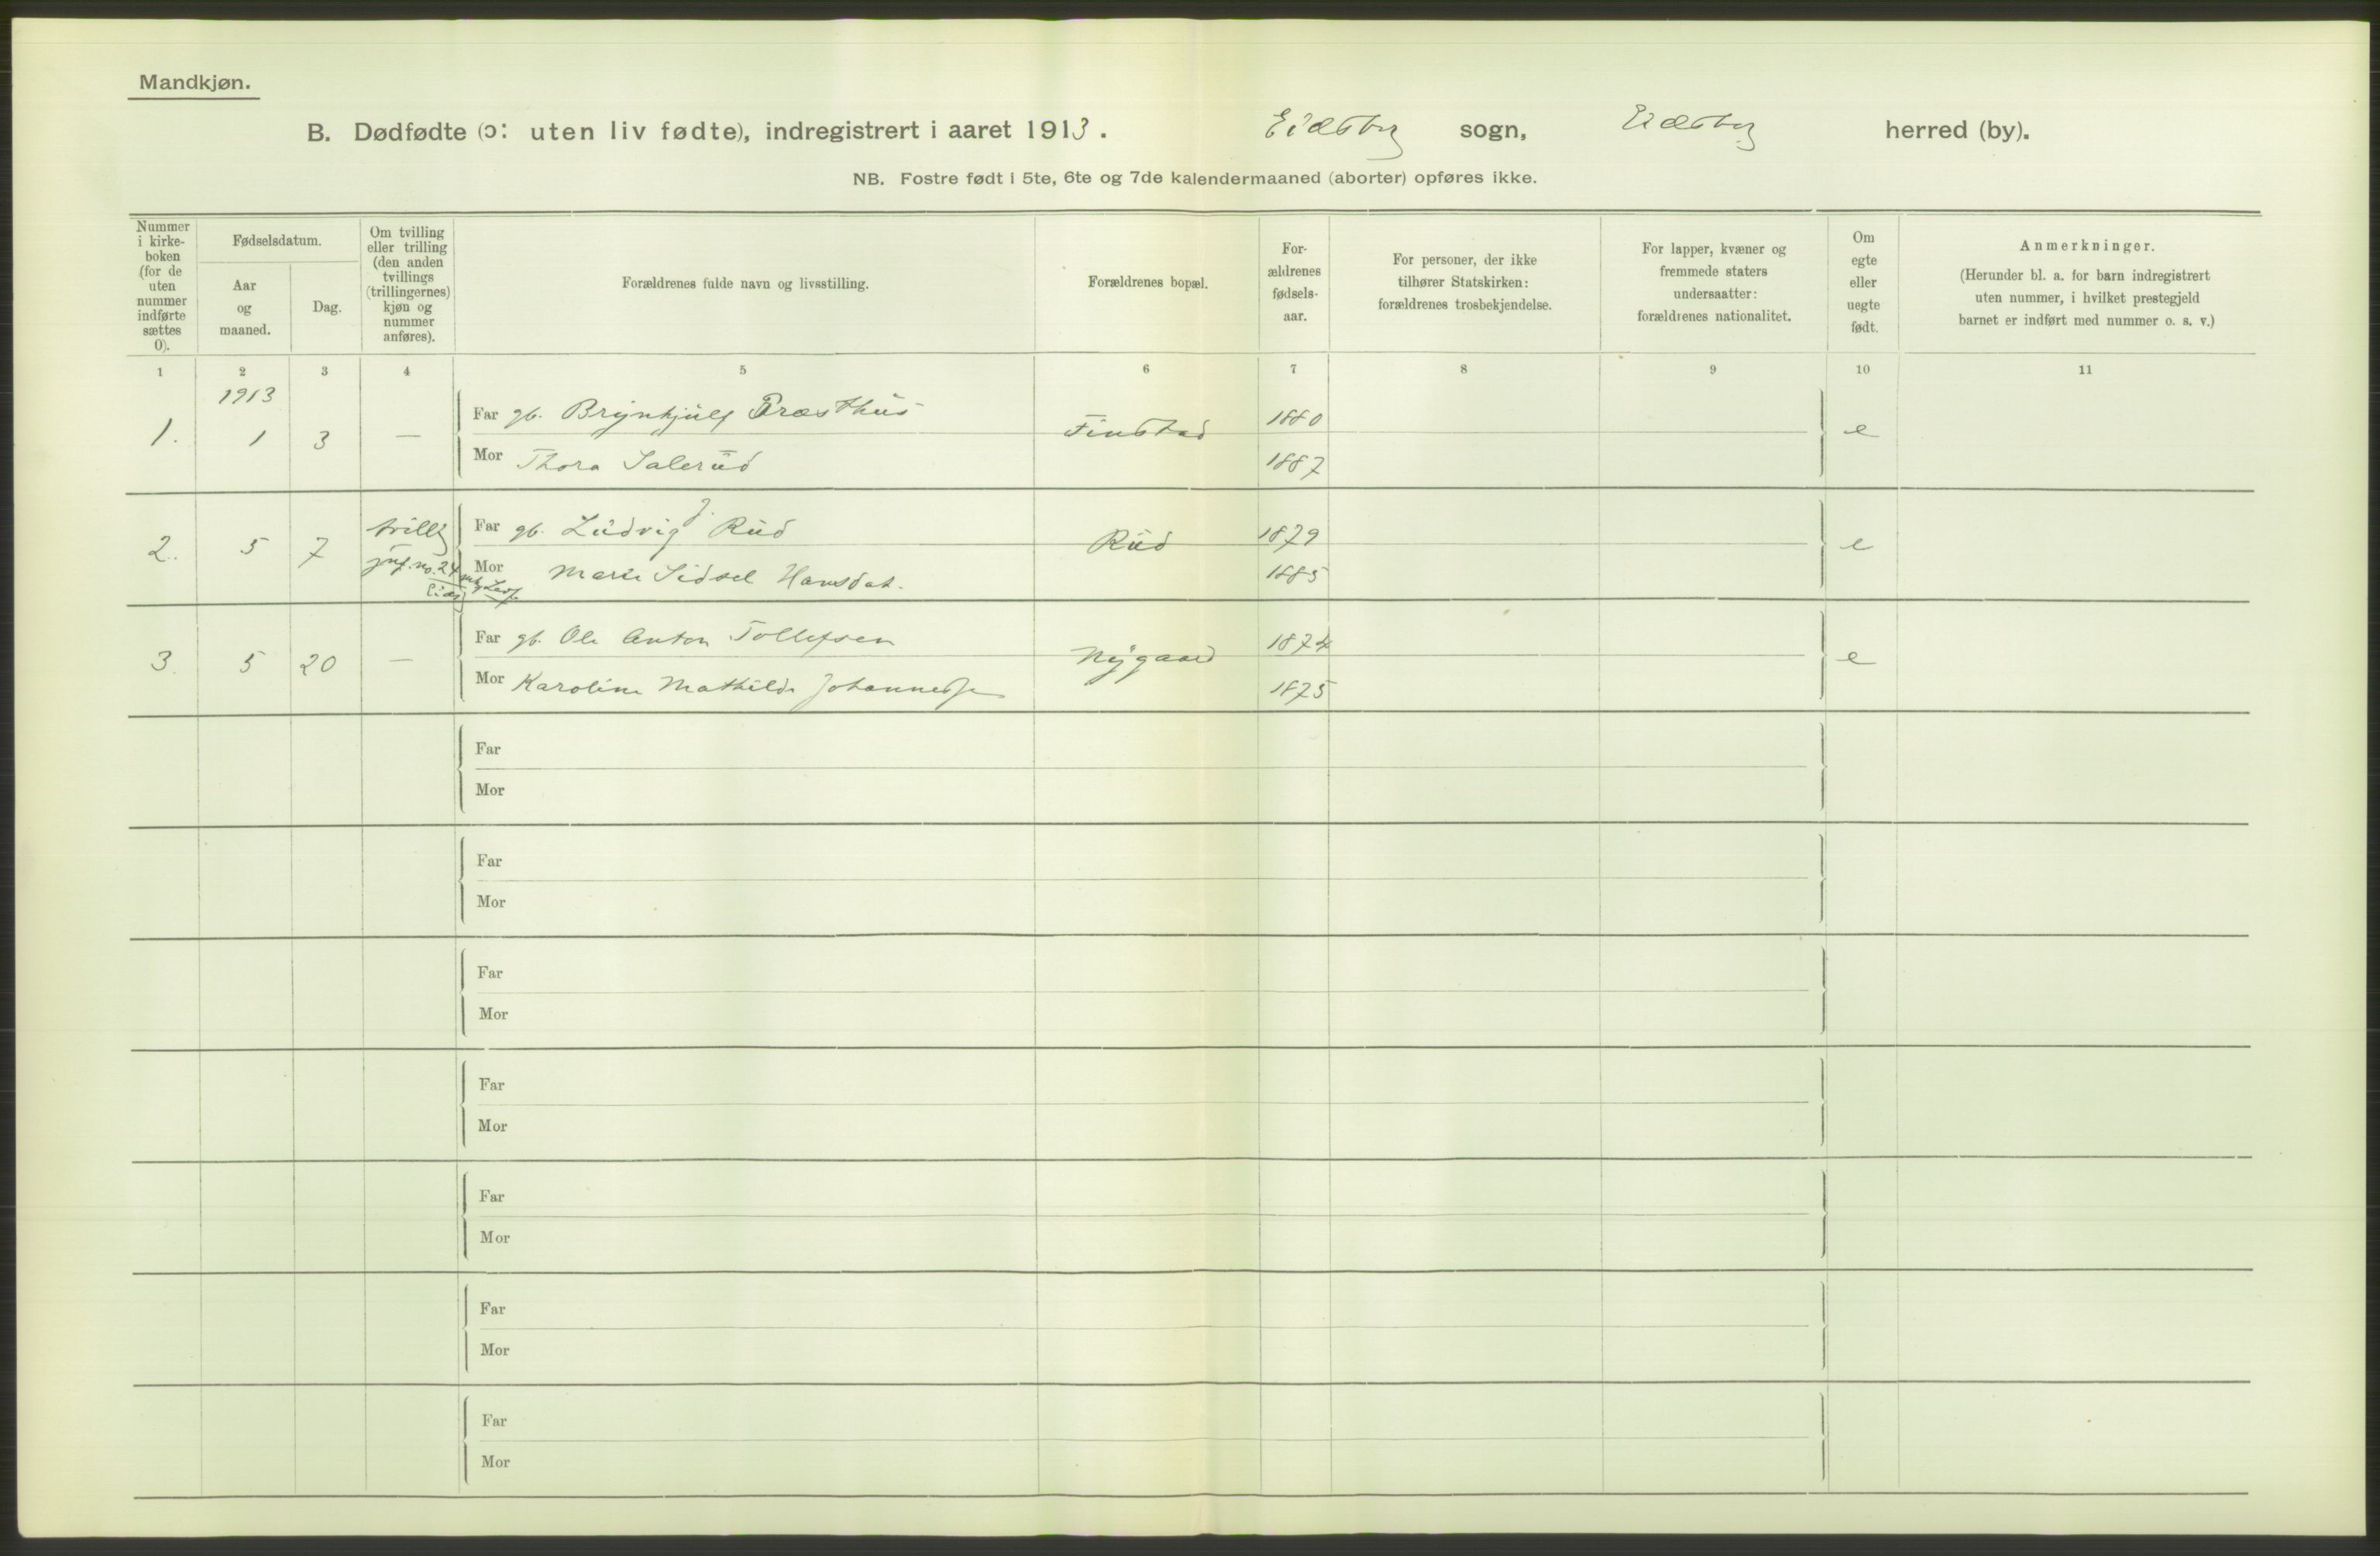 Mandkjøn.
B. Dødfødte (ɔ: uten liv fødte), indregistrert i aaret 1913. Eidsberg sogn, Eidsberg herred (by).
NB. Fostre født i 5te, 6te og 7de kalendermaaned (aborter) opføres ikke.
Nummer
i kirke-
boken
(for de
uten
nummer
indførte
sættes
0).
Fødselsdatum.
Aar
og
maaned.
Dag.
Om tvilling
eller trilling
(den anden
tvillings
(trillingernes)
kjøn og
nummer
anføres).
Forældrenes fulde navn og livsstilling.
Forældrenes bopæl.
For-
ældrenes
fødsels-
aar.
For personer, der ikke
tilhører Statskirken:
forældrenes trosbekjendelse.
For lapper, kvæner og
fremmede staters
undersaatter:
forældrenes nationalitet.
Om
egte
eller
uegte
født.
Anmerkninger.
(Herunder bl. a. for barn indregistrert
uten nummer, i hvilket prestegjeld
barnet er indført med nummer o. s. v.)
1 2 3 4 5 6 7 8 9 10 11
1913
1. 1 3 — Far gb. Brynhjulf Præsthus Finstad 1880 e
Mor Thora Salerud 1887
2. 5 7 Far gb. Ludvig J. Rud Rud 1879 e
no. 24 Mor Marie Sidsel Hansdat. 1885
3. 5 20 — Far gb. Ole Anton Tollefsen Nygaard 1874 e
Mor Karoline Mathilde 1875
Far
Mor
Far
Mor
Far
Mor
Far
Mor
Far
Mor
Far
Mor
Far
Mor